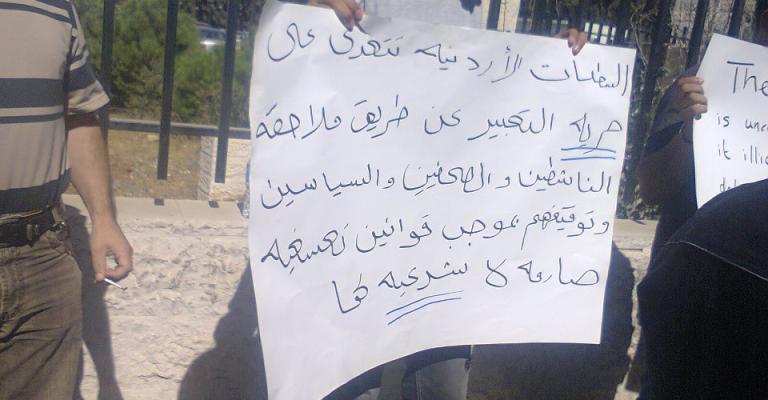 السلطات الأردنيه تتعدى على
حريه التعبير عن طريق ملاحقه
الناشطين والصحفين والسياسين
وتوقيفهم بموجب قوانين تعسفيه
صارمه لا شرعيه لها
The
is unc
it illi